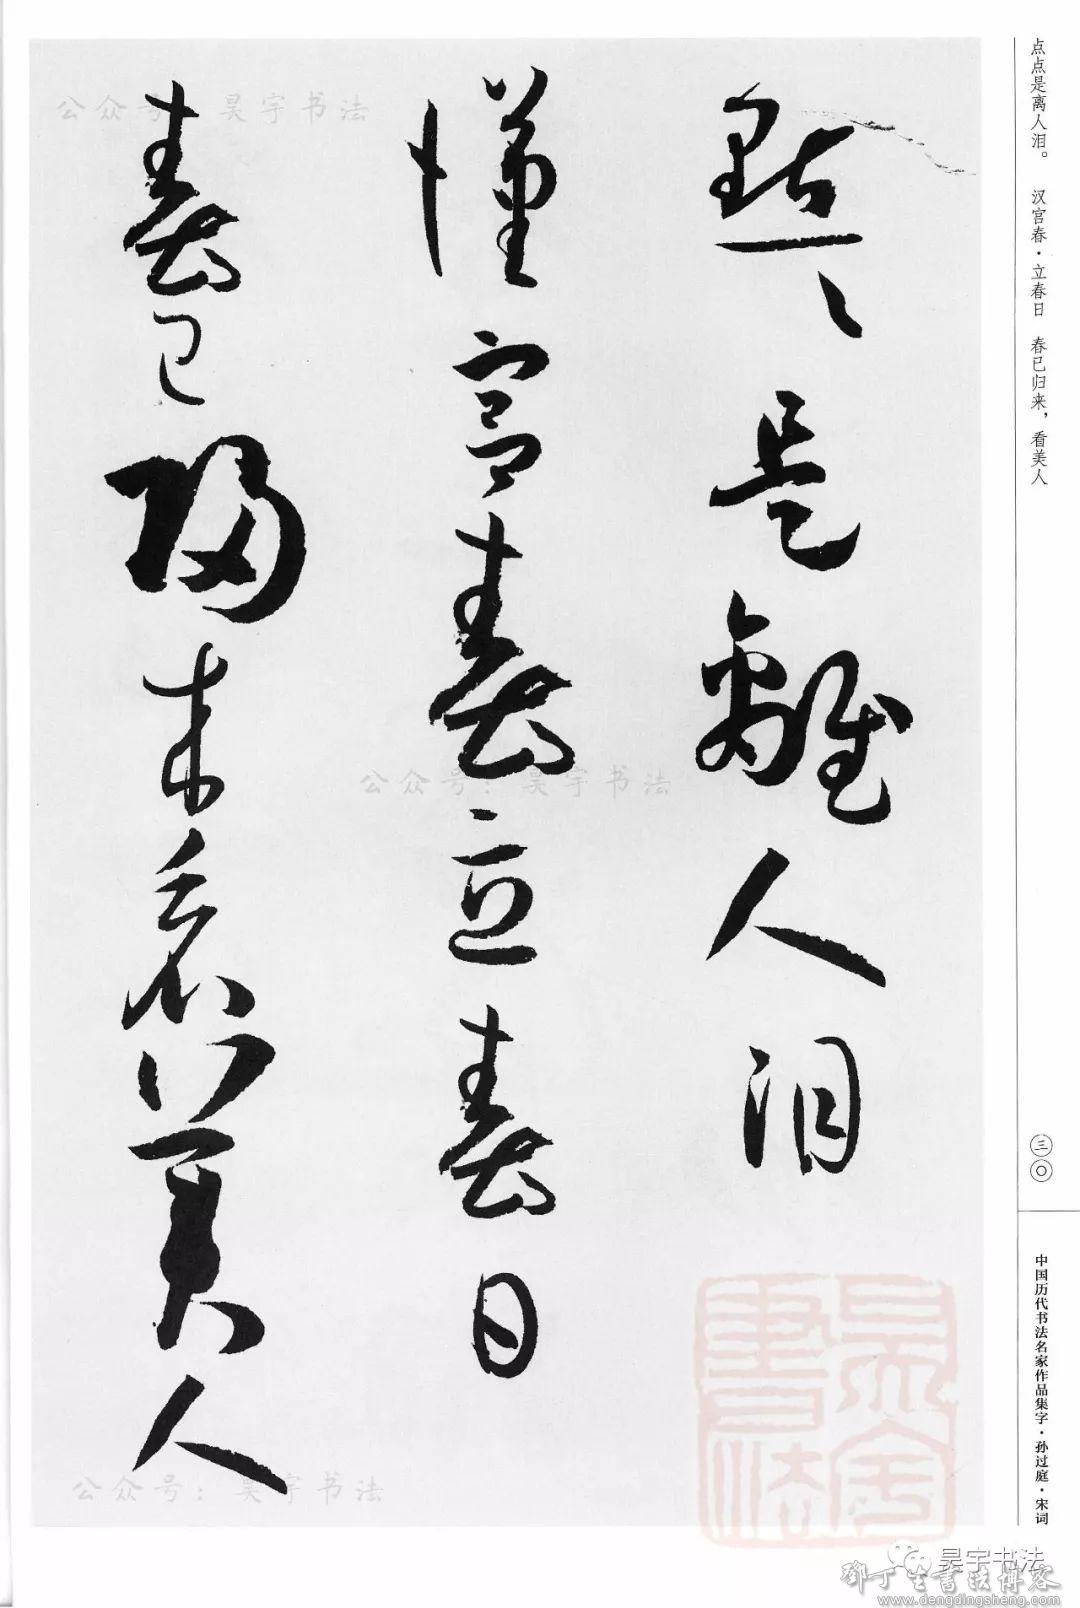 点点是离人泪。 汉宫春·立春日 春已归来，看美人
三〇
中国历代书法名家作品集字·孙过庭·宋词
點〻是離人泪
漢宫春立春日
春已歸来看美人
公众号：昊宇书法
公众号：昊宇书法
公众号：昊宇书法
昊宇書法
昊宇书法
鄧丁生書法博客
www.dengdingsheng.com